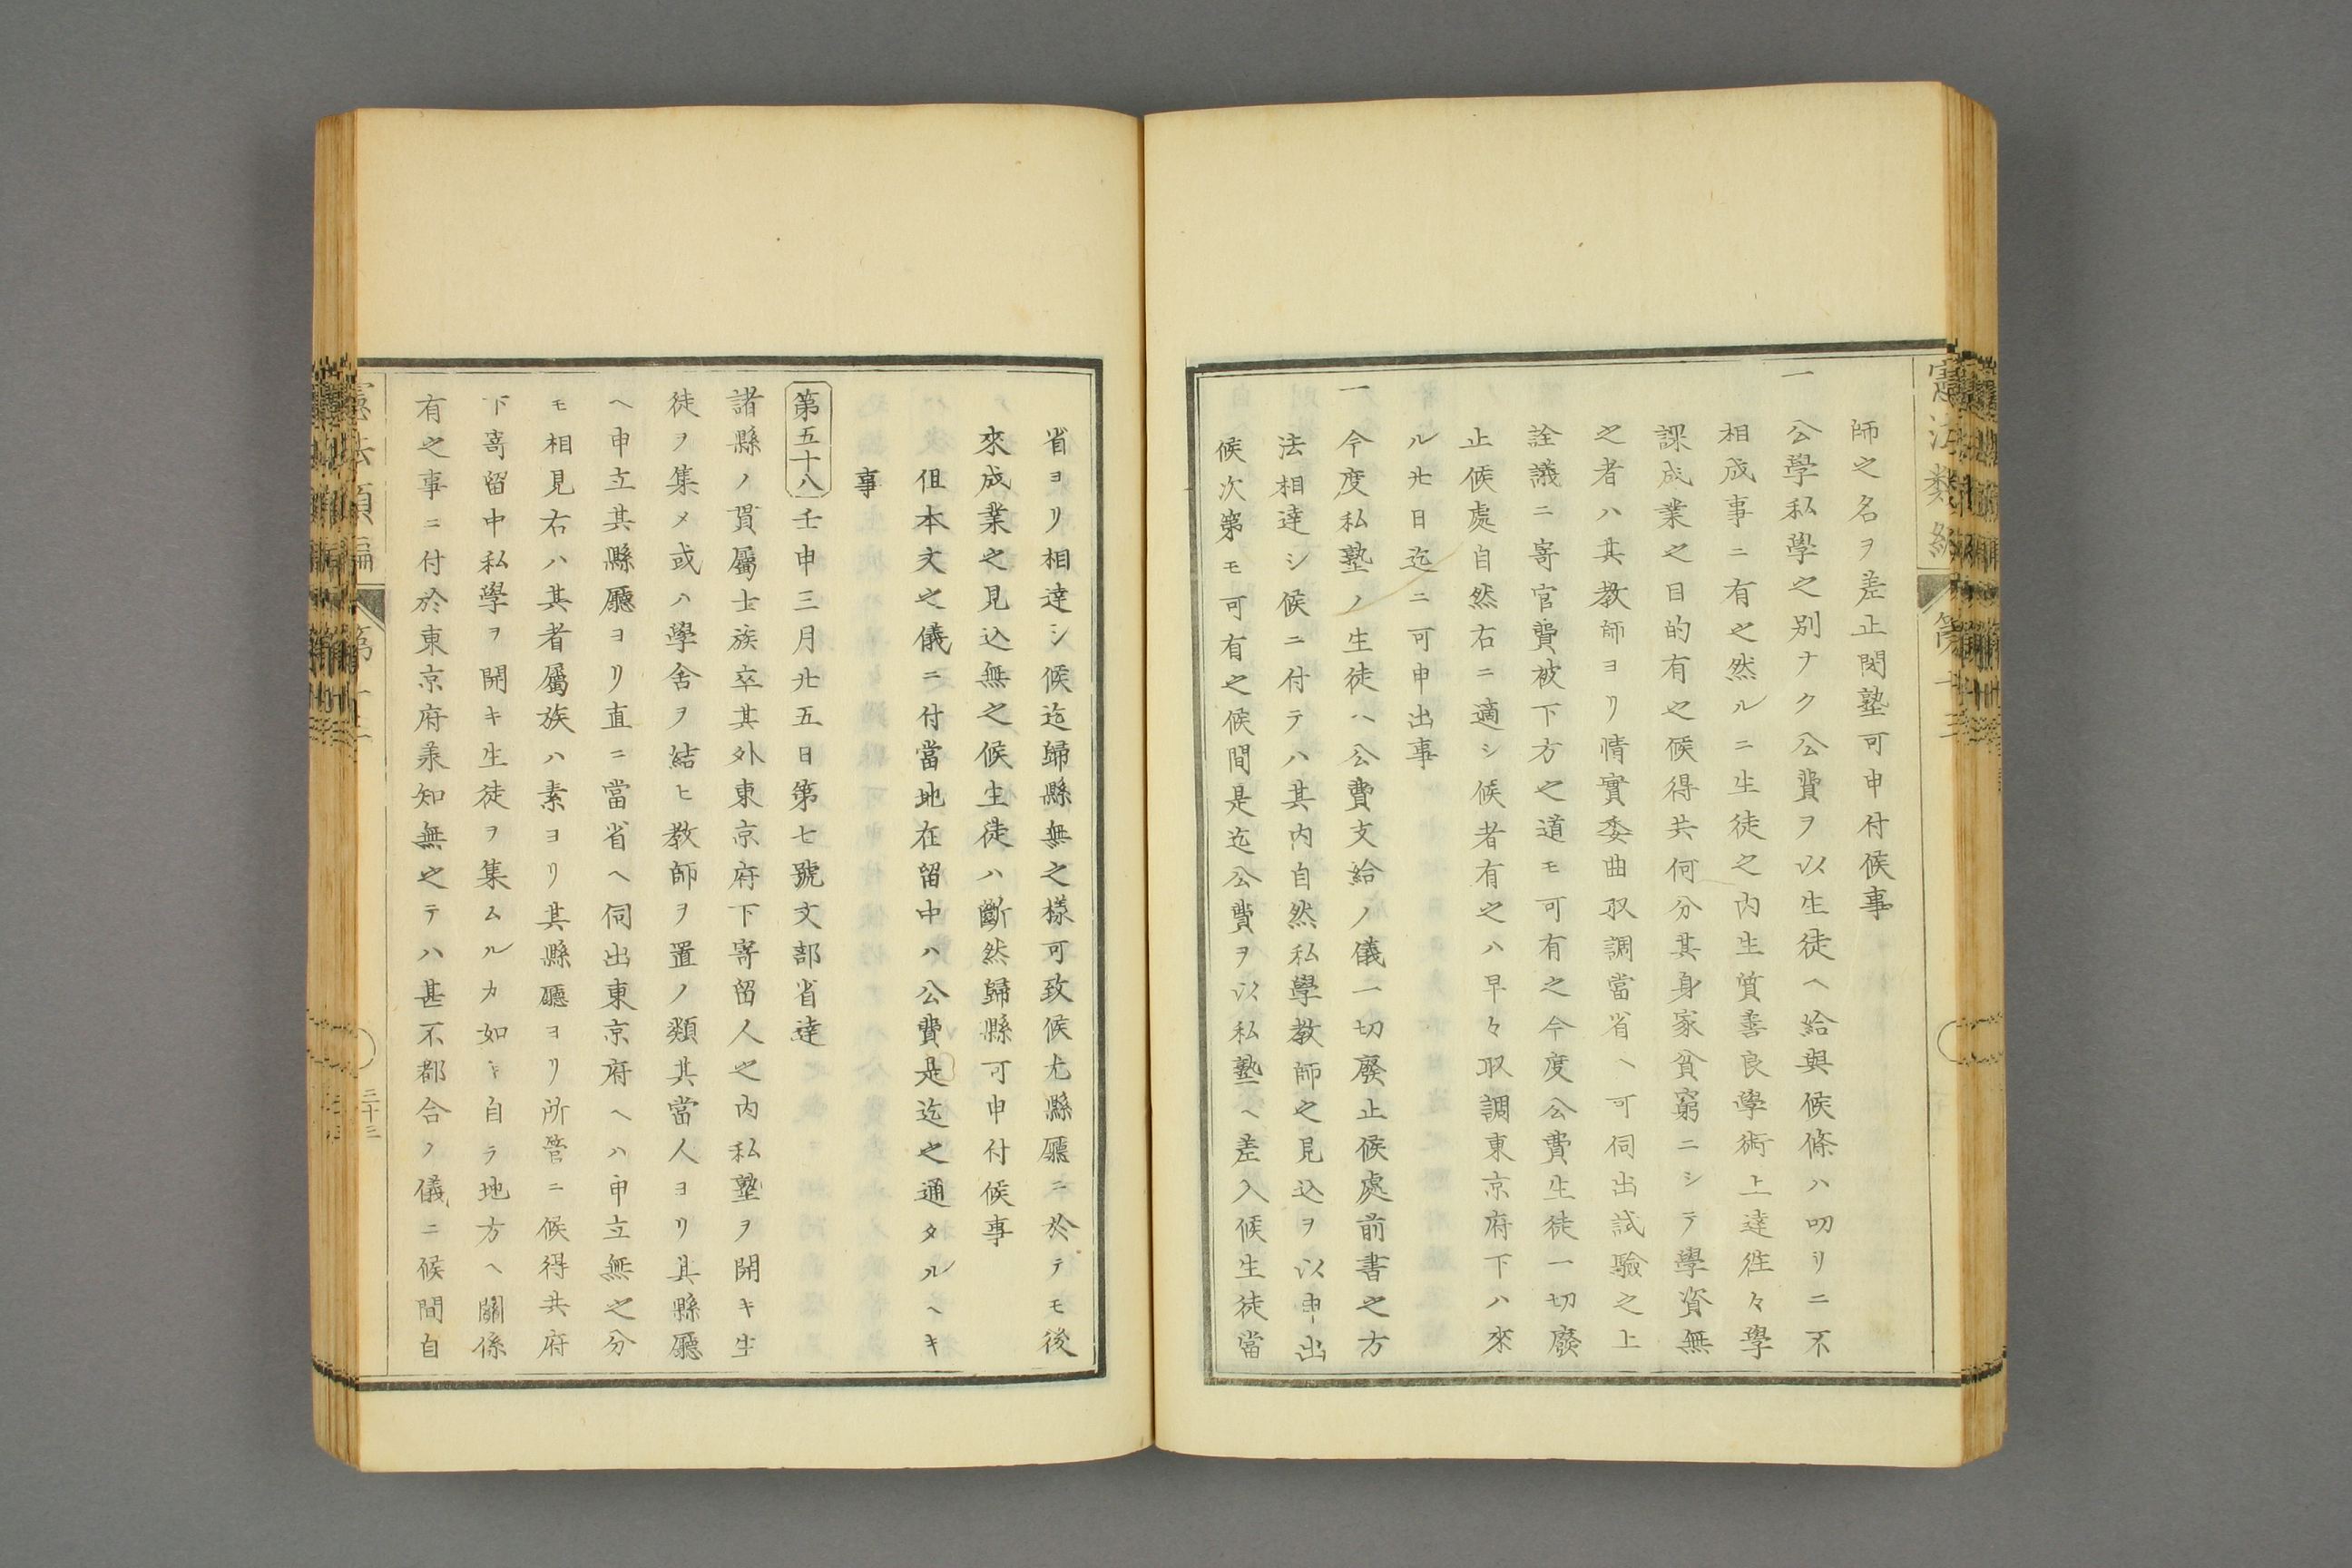 師之名ヲ差止閉塾可申付候事
一公學私學之別ナク公費ヲ以生徒ヘ給與候條ハ叨リニ不
相成事ニ有之然ルニ生徒之内生質善良學術上達往々學
課成業之目的有之候得共何分其身家貧窮ニシテ學資無
之者ハ其教師ヨリ情實委曲取調當省ヘ可伺出試驗之上
詮議ニ寄官費被下方之道モ可有之今度公費生徒一切廢
止候處自然右ニ適シ候者有之ハ早々取調東京府下ハ來
ル廾日迄ニ可申出事
一今度私塾ノ生徒ハ公費支給ノ儀一切廢止候處前書之方
法相達シ候ニ付テハ其内自然私學教師之見込ヲ以申出
候次第モ可有之候間是迄公費ヲ以私塾ヘ差入候生徒當
省ヨリ相達シ候迄歸縣無之樣可致候尤縣廳ニ於テモ後
來成業之見込無之候生徒ハ斷然歸縣可申付候事
但本文之儀ニ付當地在留中ハ公費是迄之通タルヘキ
事
第五十八壬申三月廾五日第七號文部省達
諸縣ノ貫屬士族卒其外東京府下寄留人之内私塾ヲ開キ生
徒ヲ集メ或ハ學舍ヲ結ヒ教師ヲ置ノ類其當人ヨリ其縣廳
ヘ申立其縣廳ヨリ直ニ當省ヘ伺出東京府ヘハ申立無之分
モ相見右ハ其者屬族ハ素ヨリ其縣廳ヨリ所管ニ候得共府
下寄留中私學ヲ開キ生徒ヲ集ムルカ如キ自ラ地方ヘ關係
有之事ニ付於東京府承知無之テハ甚不都合ノ儀ニ候間自
三十三